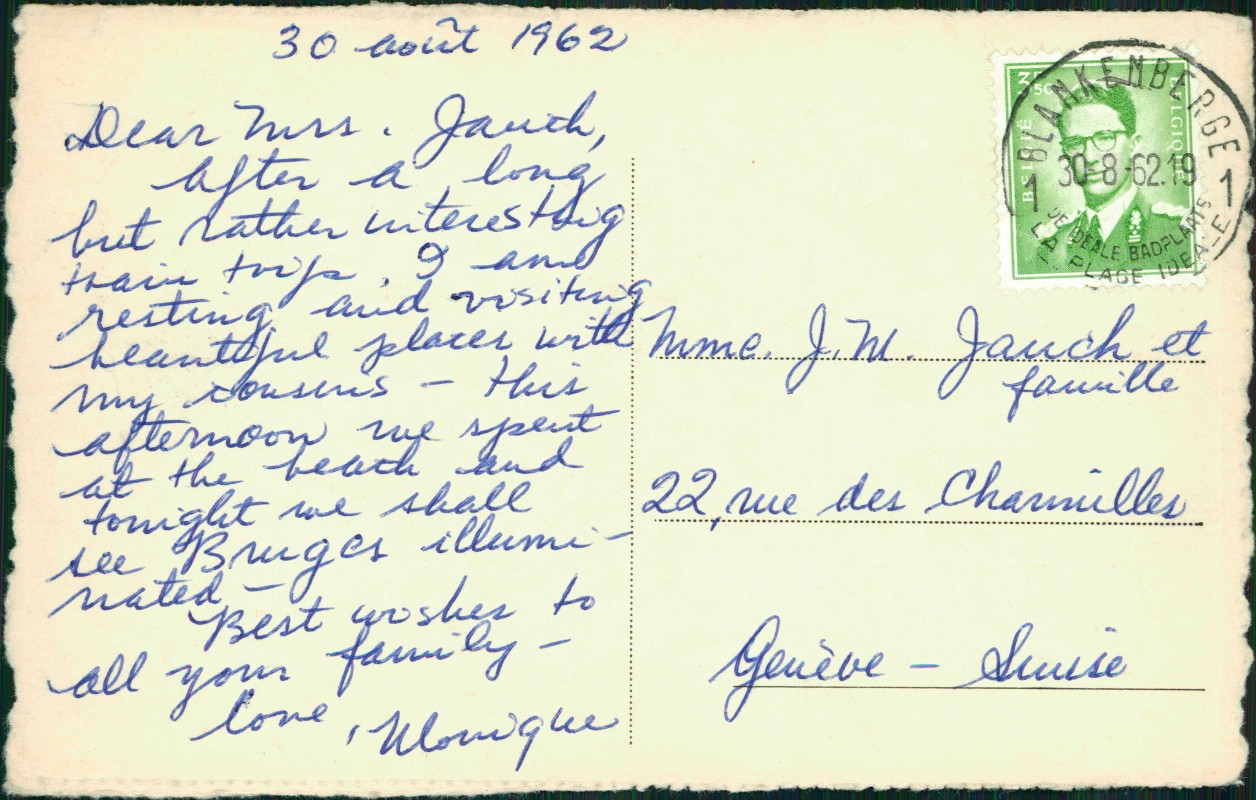 30 août 1962
Dear Mrs. Jauch,
after a long
but rather interesting
train trip. I am
resting and visiting
beautiful places with
my cousins - this
afternoon we spent
at the beach and
tonight we shall
see Bruges illumi-
nated -
Best wishes to
all your family -
love, Monique
3F
50
BELGIE
BELGIQUE
BLANKENBERGE
1 30-8-62.19 1
DE IDEALE BADPLAATS
LA PLAGE IDEALE
Mme. J.M. Jauch et
famille
22, rue des Charmilles
Genève - Suisse